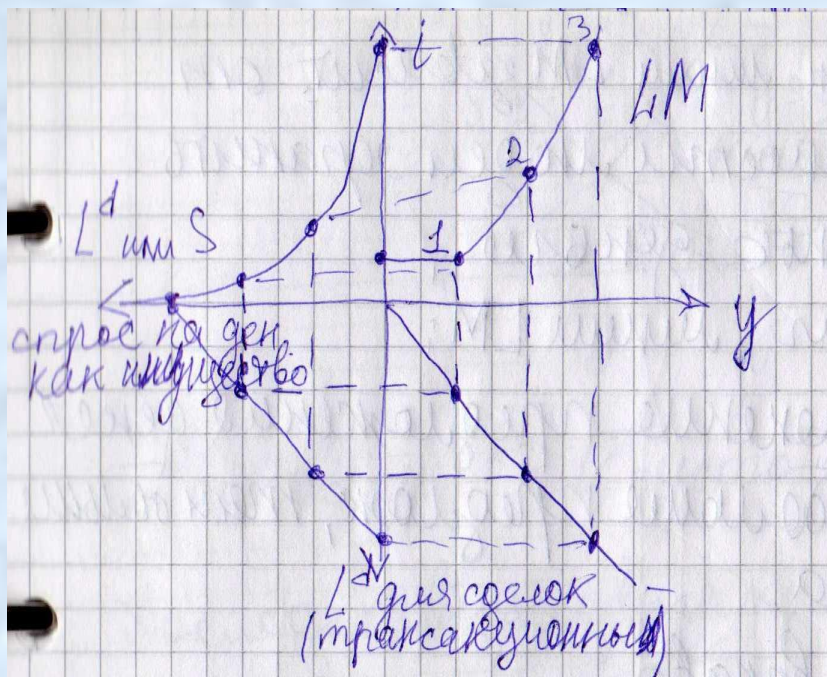 i
3
LM
2
1
L^d или S
y
спрос на ден.
как имущество
L^d для сделок
(трансакционный)